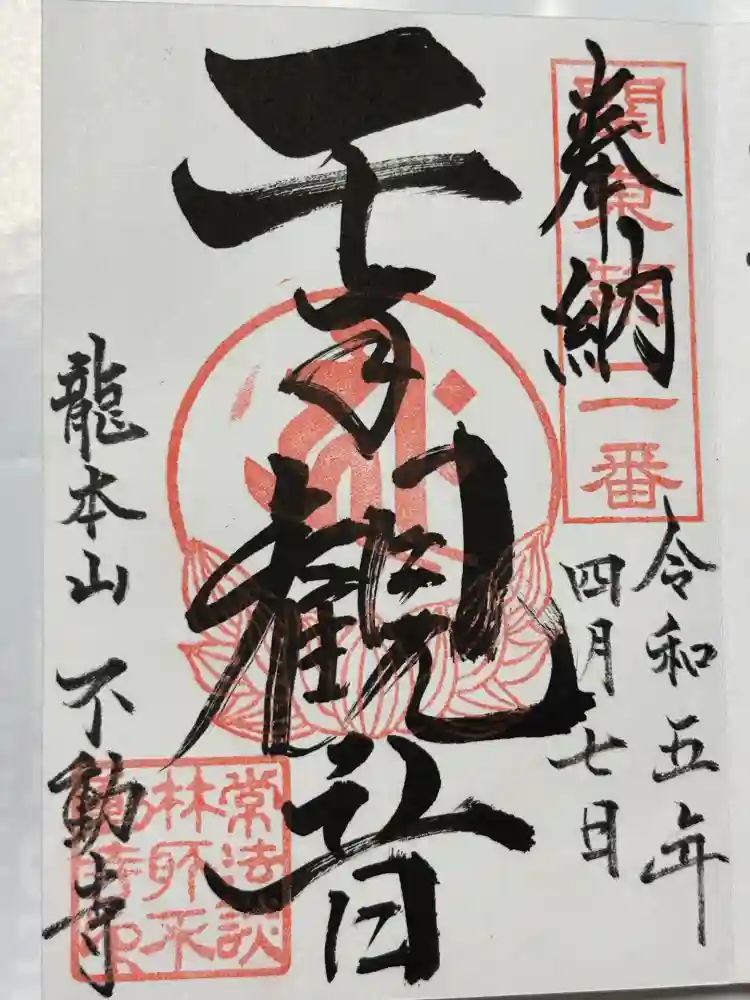 奉納
關東第二番
令和五年
四月七日
千手観音
龍本山 不動寺
常法談
林所不
動寺印